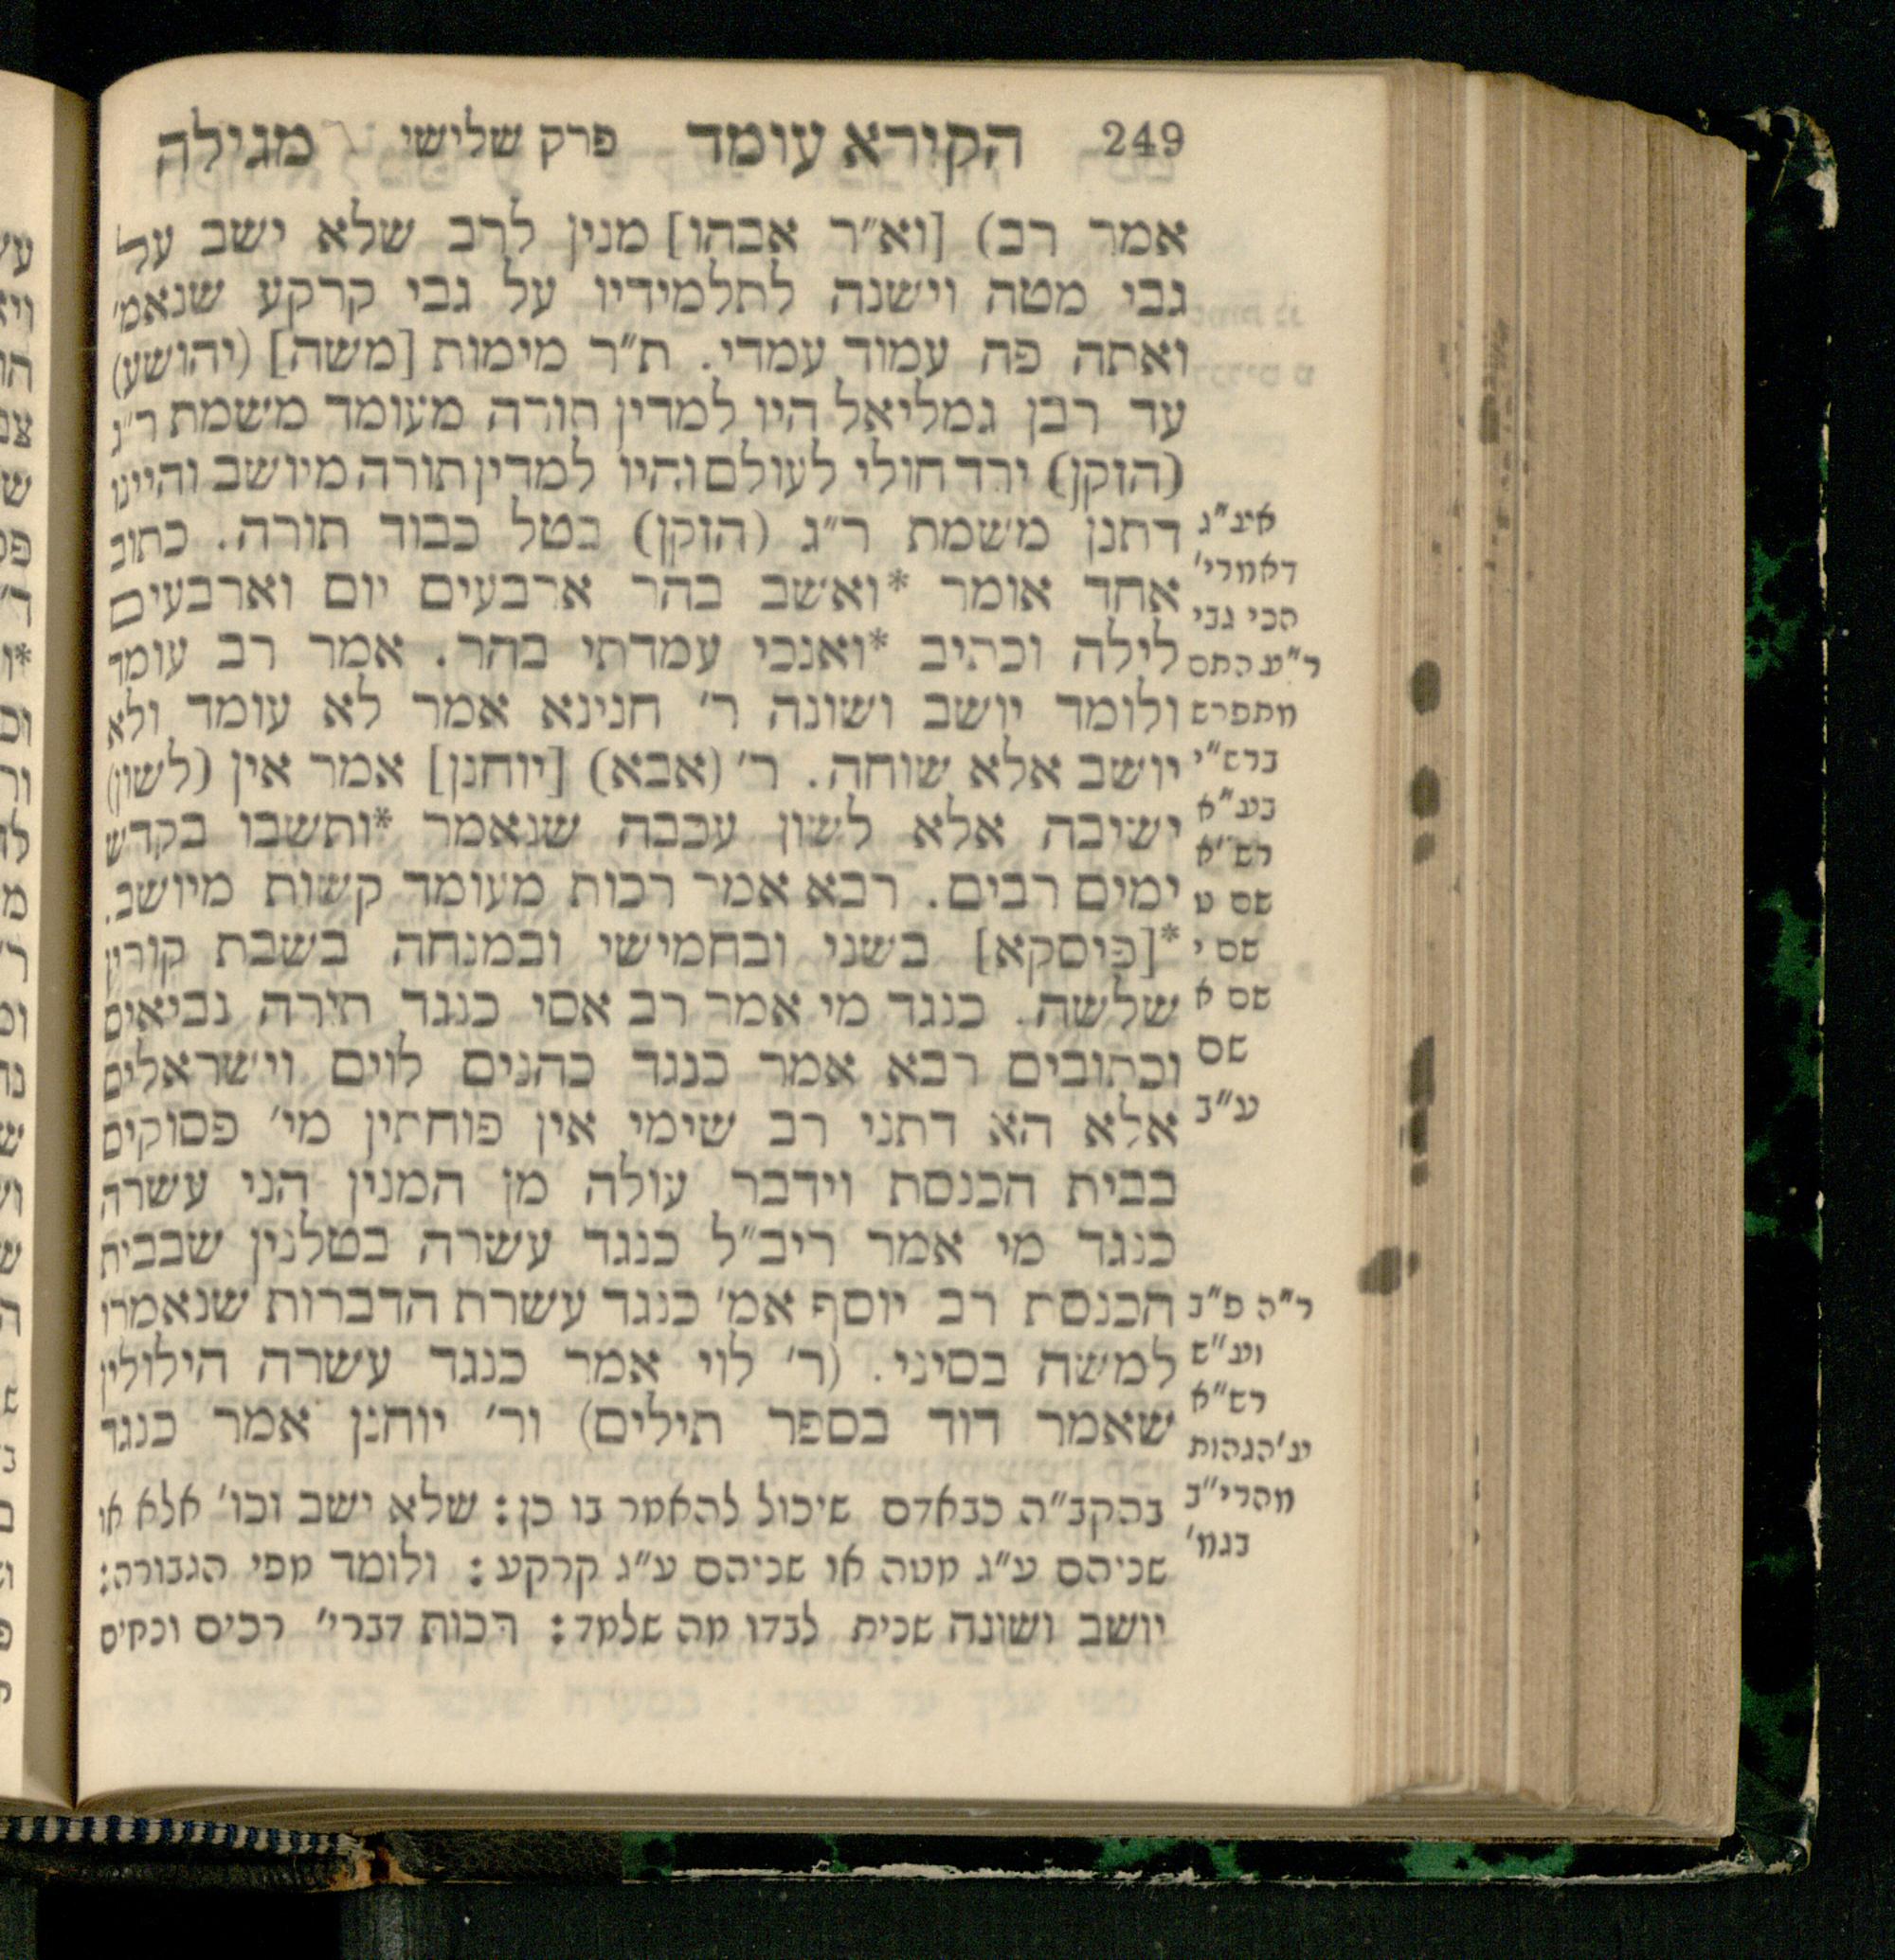 249 הקורא עומד פרק שלישי מגילה
אמר רב) [וא״ר אבהו] מנין לרב שלא ישב על
גבי מטה וישנה לתלמידיו על גבי קרקע שנאמ׳
ואתה פה עמוד עמדי. ת״ר מימות [משה] (יהושע)
עד רבן גמליאל היו למדין תורה מעומד משמת ר״ג
(הזקן) ירד חולי לעולם והיו למדין תורה מיושב והיינו
דתנן משמת ר״ג (הזקן) בטל כבוד תורה. כתוב
אחד אומר *ואשב בהר ארבעים יום וארבעים
לילה וכתיב *ואנכי עמדתי בהר. אמר רב עומד
ולומד יושב ושונה ר׳ חנינא אמר לא עומד ולא
יושב אלא שוחה. ר׳ (אבא) [יוחנן] אמר אין (לשון)
ישיבה אלא לשון עכבה שנאמר *ותשבו בקדש
ימים רבים. רבא אמר רכות מעומד קשות מיושב.
*[פיסקא] בשני ובחמישי ובמנחה בשבת קורין
שלשה. כנגד מי אמר רב אסי כנגד תורה נביאים
וכתובים רבא אמר כנגד כהנים לוים וישראלים
אלא הא דתני רב שימי אין פוחתין מי׳ פסוקים
בבית הכנסת וידבר עולה מן המנין הני עשרה
כנגד מי אמר ריב״ל כנגד עשרה בטלנין שבבית
הכנסת רב יוסף אמ׳ כנגד עשרת הדברות שנאמרו
למשה בסיני. (ר׳ לוי אמר כנגד עשרה הילולין
שאמר דוד בספר תילים) ור׳ יוחנן אמר כנגד
בהקב״ה כבאדם שיכול להאמר בו כן: שלא ישב וכו׳ אלא או
שניהם ע״ג מטה או שניהם ע״ג קרקע: ולומד מפי הגבורה:
יושב ושונה שנית לבדו מה שלמד: רכות דברי׳ רכים ונחים
דאמרי׳
הכי גבי
ר״ע התם
מתפרש
ברש״י
בע״א
רש״א
שם ט
שם י
שם א
שם
ע״ב
ר״ה פ״ב
וע״ש
רש״א
וע׳ הגהות
מהרי״ב
בגמ׳